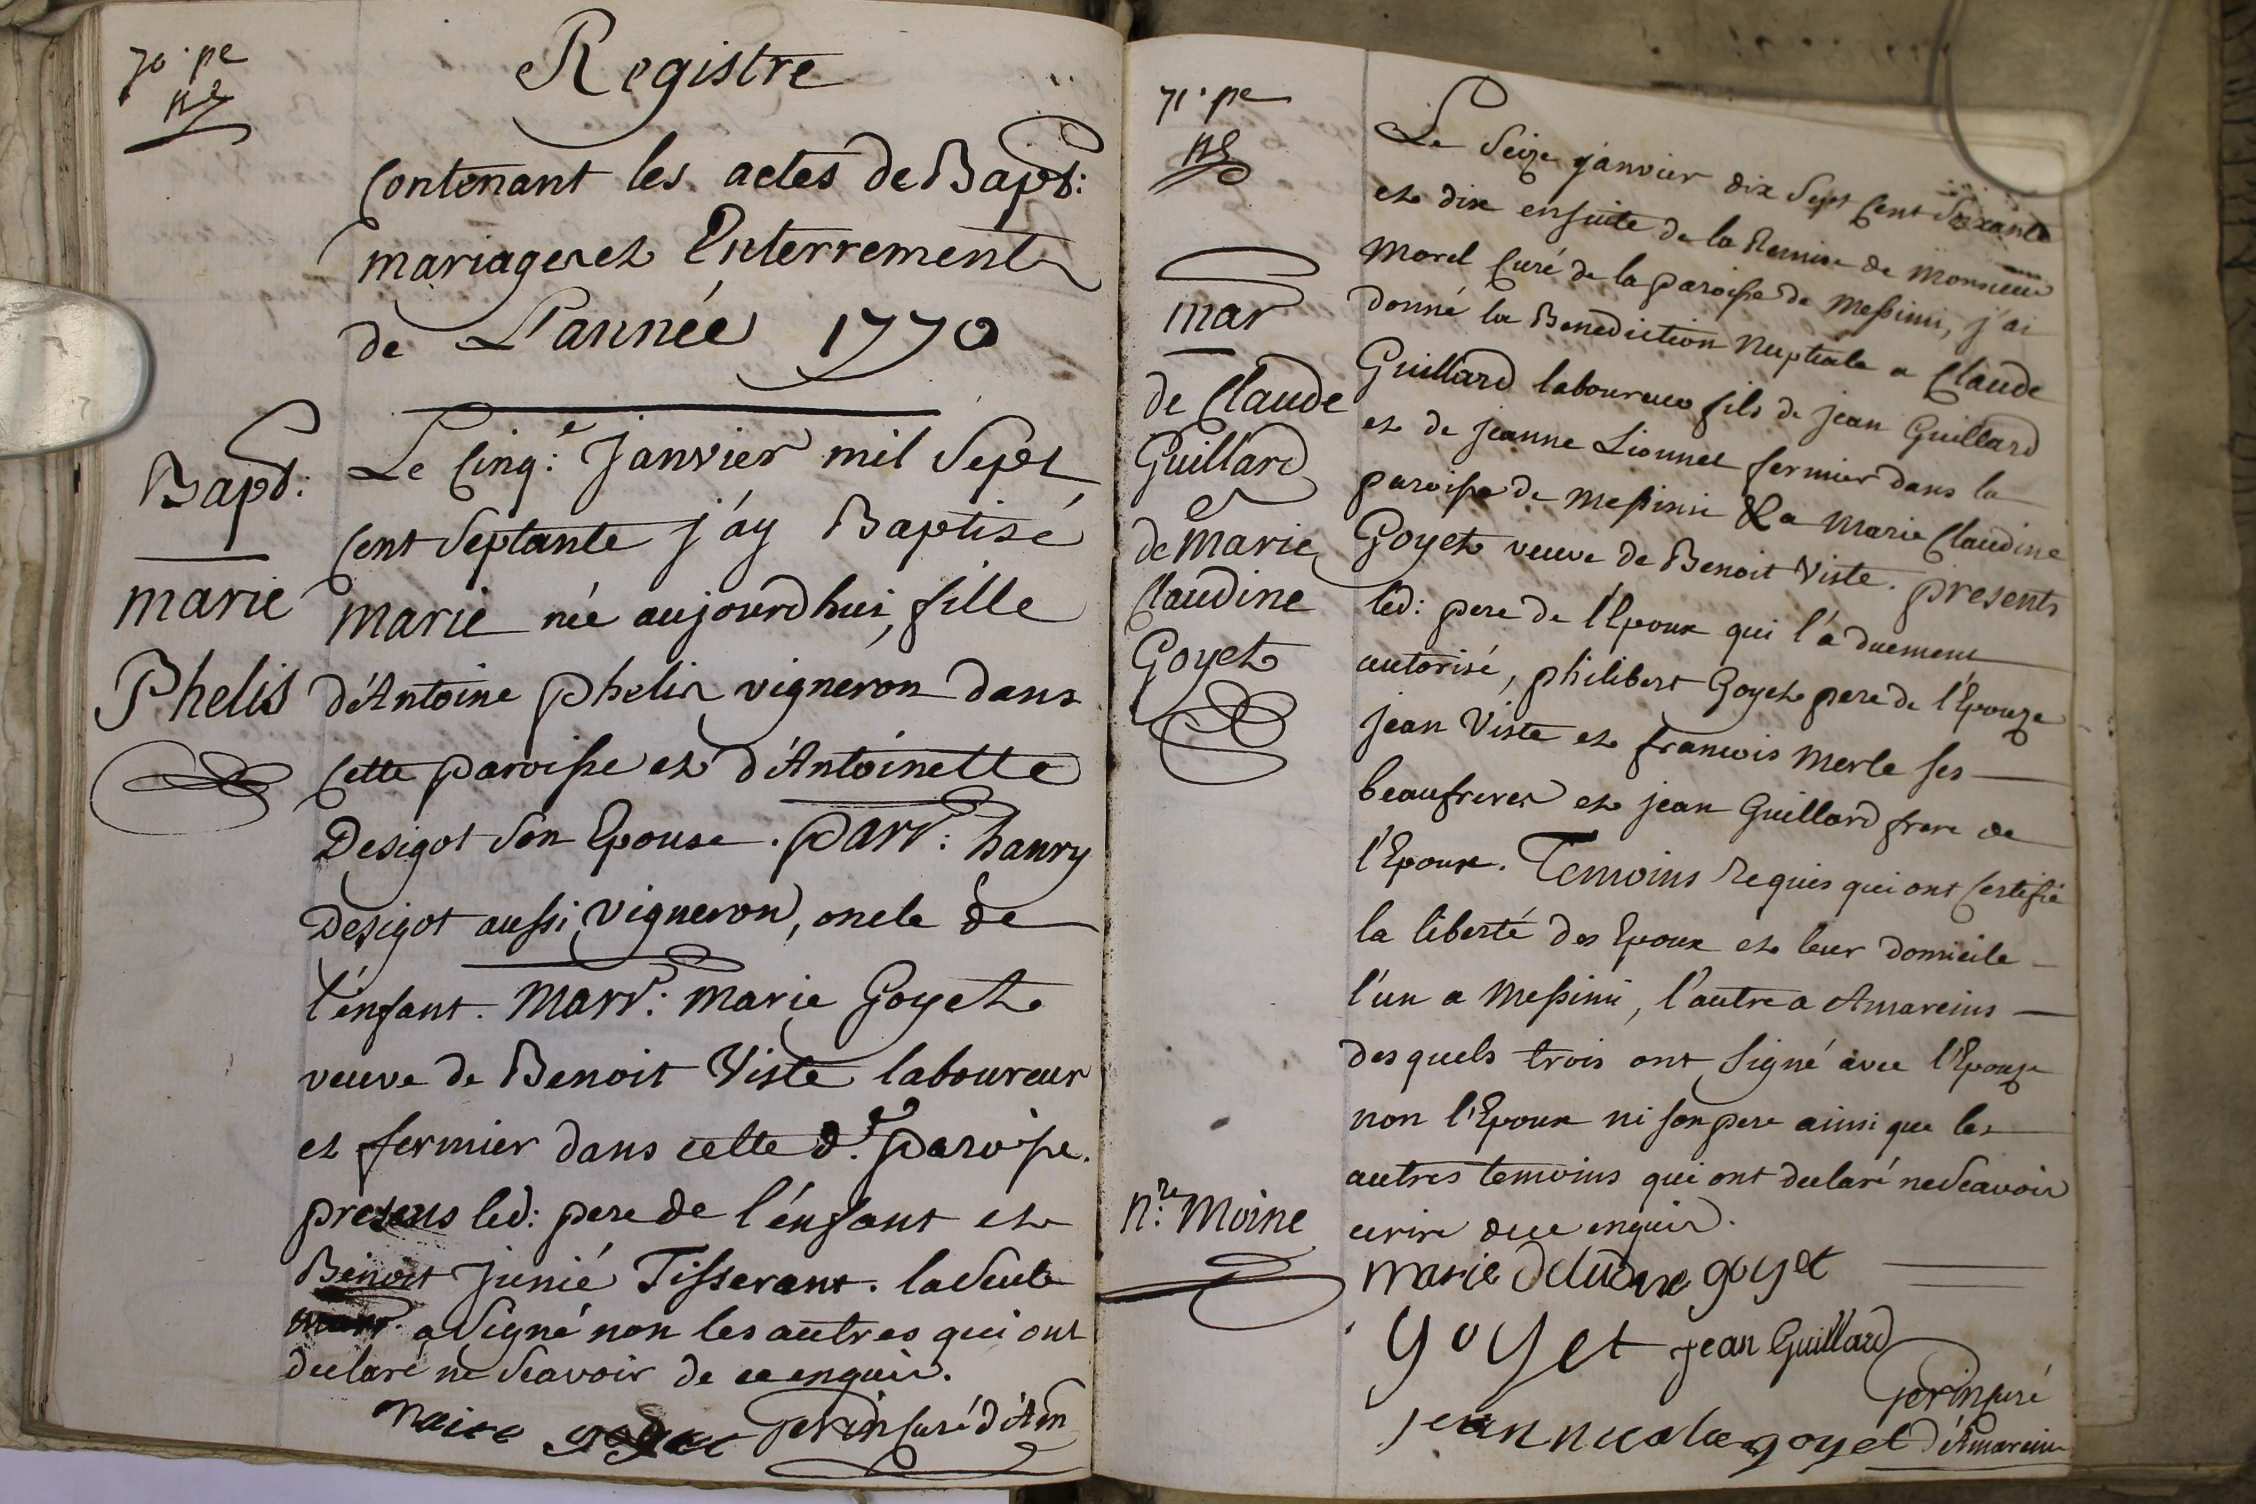 70.e pe
Registre
Contenant les actes de Bapt:
mariages et Enterrements
de L'année 1770
Bapt:
marie
Phelis
Le Cinq.e Janvier mil Sept
Cent Septante j'ay Baptisé
Marie née aujourdhui, fille
d'Antoine phelis vigneron dans
Cette paroisse et d'Antoinette
Desigot son Epouse. parr: hanry
Desigot aussi vigneron, oncle de
l'énfant. Marr: marie Goyet
veuve de Benoit Viste laboureur
et fermier dans cette d.e paroisse.
presens led: pere de l'énfant et
Benoit Junié Tisserant. la seule
marr. a signé non les autres qui ont
declaré ne scavoir de ce enquis.
Perrin Curé d'Am
71.e pe
mar
de Claude
Guillard
&
de Marie
Claudine
Goyet
n.re Moine
Le Seize janvier dix Sept Cent Soixante
et dix ensuite de la Remise de Monsieur
Morel Curé de la paroisse de Messimi, j'ai
donné la Benediction Nuptiale a Claude
Guillard laboureur fils de jean Guillard
et de jeanne Lionnet fermier dans la
paroisse de Messimi & a Marie Claudine
Goyet veuve de Benoit Viste. presents
led: pere de l'Epoux qui l'a duement
autorisé, philibert Goyet pere de l'Epouze
jean Viste et francois Merle ses
beaufreres et jean Guillard frere de
l'Epoux. Temoins Requis qui ont Certifié
la liberté des Epoux et leur domicile
l'un a Messimi, l'autre a Amareins
desquels trois ont signé avec l'Epouze
non l'Epoux ni son pere ainsi que les
autres temoins qui ont declaré ne Scavoir
ecrire de ce enquis.
marie Goyet
goyet jean Guillard
Perrin Curé
jean nicolas goyet d'Amareins